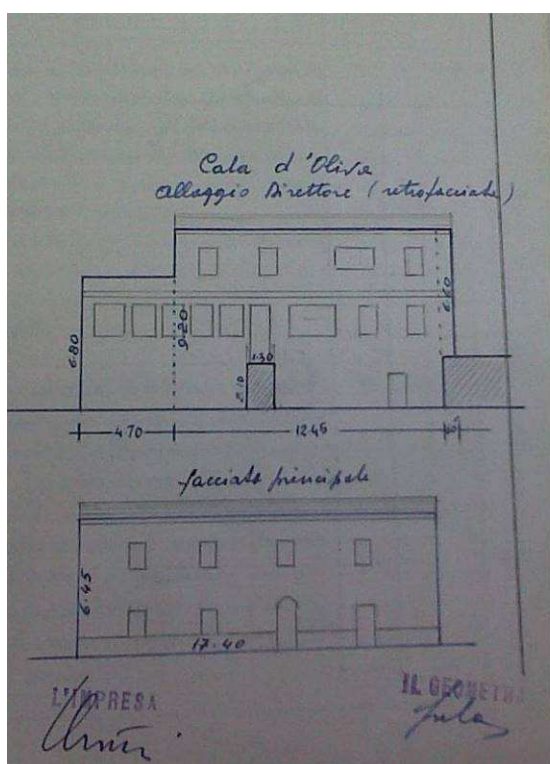 Cala d'Oliva
Alloggio Direttore (retrofacciata)
6.80
9.20
6.10
1.30
2.10
4.70
12.45
facciata principale
6.45
17.40
L'IMPRESA
IL GEOMETRA